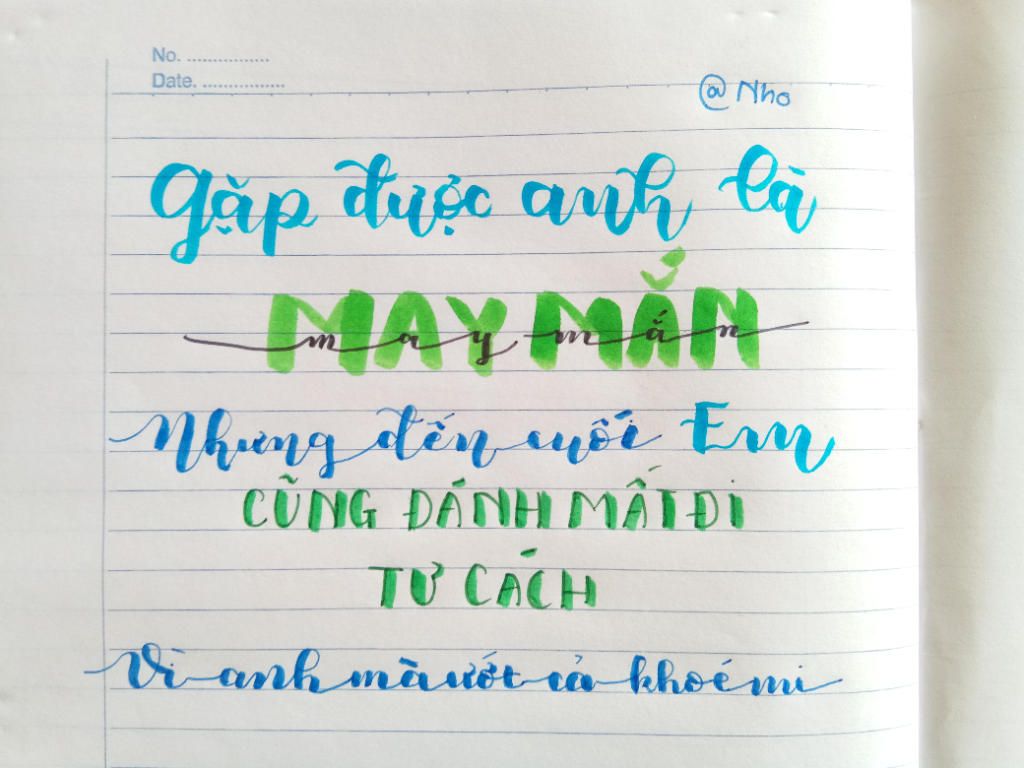 No. ................
Date. ................
@ Nho
Gặp được anh là
MAY MẮN
may mắn
Nhưng đến cuối Em
CŨNG ĐÁNH MẤT ĐI
TƯ CÁCH
Vì anh mà ướt cả khoé mi